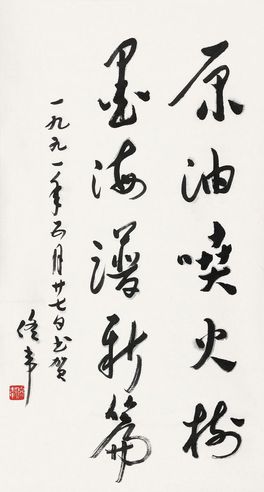 原油喷火树
墨海谱新篇
一九九一年五月廿七日书贺